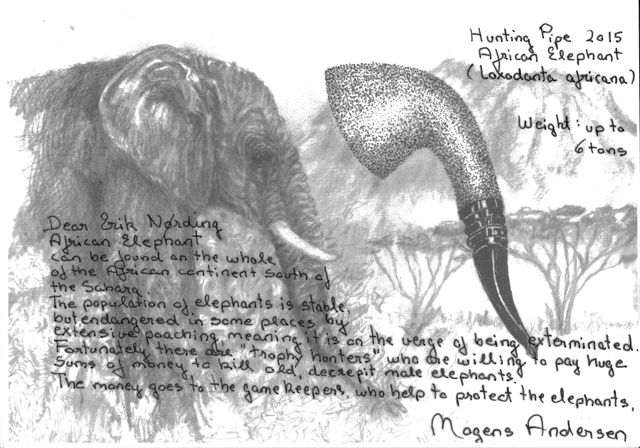 Hunting Pipe 2015
African Elephant
(Loxodanta africana)
Weight: up to
6 tons
Dear Erik Nørding
African Elephant
can be found on the whole
of the African continent South of
the Sahara.
The population of elephants is stable,
but endangered in some places by
extensive poaching, meaning it is on the verge of being exterminated.
Fortunately there are "trophy hunters" who are willing to pay huge
Sums of money to kill old, decrepit male elephants.
The money goes to the gamekeepers, who help to protect the elephants.
Mogens Andersen